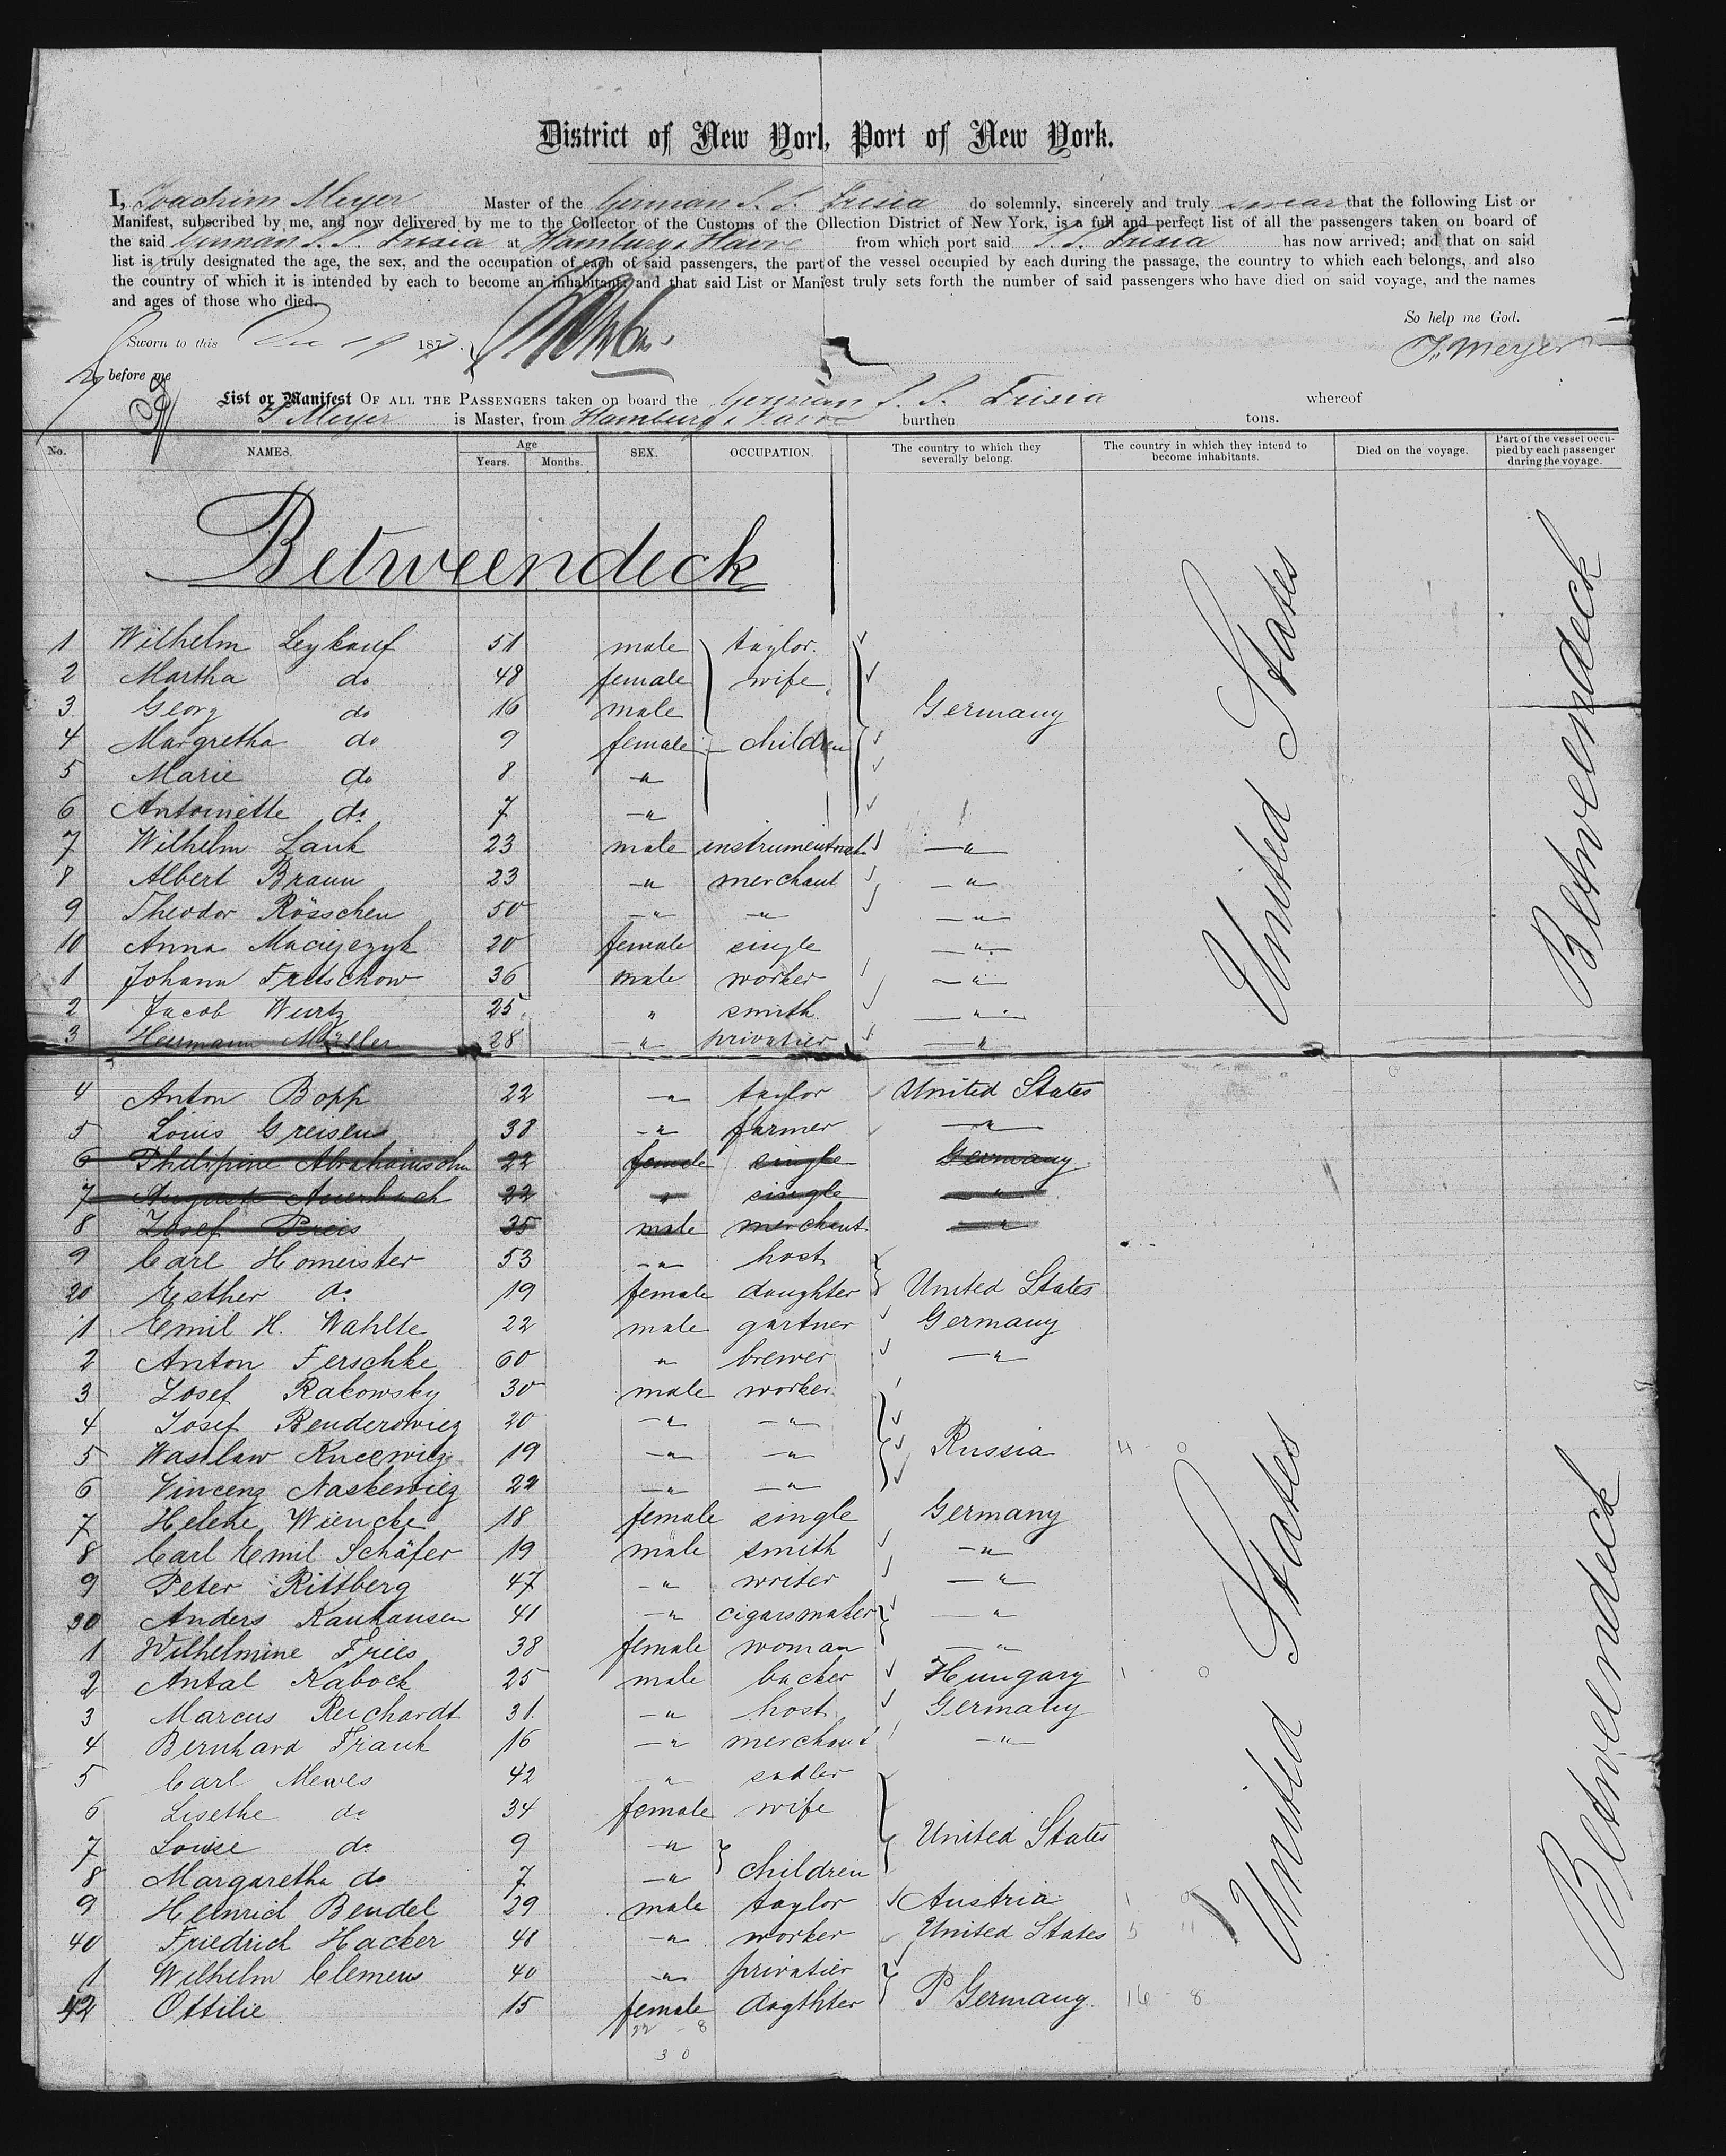 District of New York, Port of New York.
I, Joachim Meyer Master of the German S. S. Frisia do solemnly, sincerely and truly swear that the following List or
Manifest, subscribed by me, and now delivered by me to the Collector of the Customs of the Collection District of New York, is a full and perfect list of all the passengers taken on board of
the said German S. S. Frisia at Hamburg & Havre from which port said S. S. Frisia has now arrived; and that on said
list is truly designated the age, the sex, and the occupation of each of said passengers, the part of the vessel occupied by each during the passage, the country to which each belongs, and also
the country of which it is intended by each to become an inhabitant; and that said List or Manifest truly sets forth the number of said passengers who have died on said voyage, and the names
and ages of those who died.
So help me God.
Sworn to this Dec 19 187
J. Meyer
before me
List or Manifest OF ALL THE PASSENGERS taken on board the German S. S. Frisia whereof
J Meyer is Master, from Hamburg & Havre burthen tons.
No. NAMES. Age Years. Months. SEX. OCCUPATION. The country to which they severally belong. The country in which they intend to become inhabitants. Died on the voyage. Part of the vessel occupied by each passenger during the voyage.
Betweendeck
1 Wilhelm Leykauf 51 male taylor.
2 Martha do 48 female wife
3 Georg do 16 male Germany
4 Margretha do 9 female children
5 Marie do 8 "
6 Antoinette do 7 "
7 Wilhelm Lank 23 male instrumentmak. "
8 Albert Braun 23 " merchant "
9 Theodor Rösschen 50 " " "
10 Anna Maciejezyk 20 female single "
1 Johann Fretschow 36 male worker "
2 Jacob Wurtz 25 " smith "
3 Hermann Müller 28 " privatier "
United States
Betweendeck
4 Anton Bopp 22 " taylor United States
5 Louis Greisen 38 " farmer "
6 Philipine Abrahamsohn 22 female single Germany
7 Auguste Auerbach 22 " single "
8 Josef Preis 35 male merchant "
9 Carl Homeister 53 " host
20 Esther do 19 female daughter United States
1 Emil H. Wahlte 22 male gartner Germany
2 Anton Ferschke 60 " brewer "
3 Josef Rakowsky 30 male worker
4 Josef Benderowiez 20 " "
5 Waslaw Kucewiez 19 " " Russia
6 Vincenz Naskewiez 22 " "
7 Helene Wiencke 18 female single Germany
8 Carl Emil Schäfer 19 male smith "
9 Peter Rittberg 47 " writer "
30 Anders Kauhausen 41 " cigarsmaker "
1 Wilhelmine Fries 38 female woman "
2 Antal Kabock 25 male backer Hungary
3 Marcus Reichardt 31 " host Germany
4 Bernhard Frank 16 " merchant "
5 Carl Mewes 42 " sadler
6 Lisethe do 34 female wife
7 Louise do 9 " United States
8 Margaretha do 7 " children
9 Heinrich Bendel 29 male taylor Austria
40 Friedrich Hacker 48 " worker United States
1 Wilhelm Clemens 40 " privatier
42 Ottilie 15 female dagthter Germany. 16 - 8
22 - 8
30
United States
Betweendeck